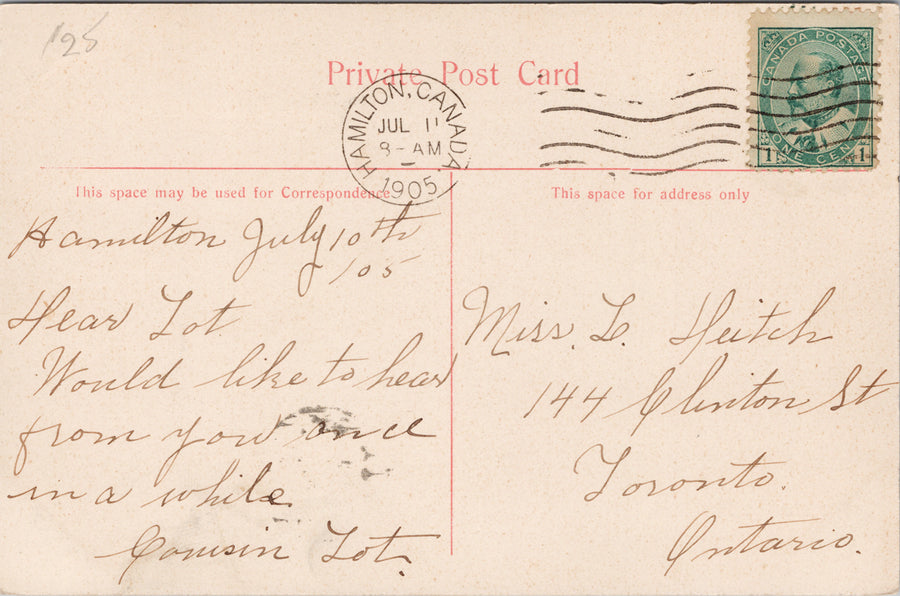 125
Private Post Card
CANADA POSTAGE
1 ONE CENT 1
HAMILTON, CANADA
JUL 11
8-AM
1905
This space may be used for Correspondence
This space for address only
Hamilton July 10th
/05
Dear Lot
Would like to hear
from you once
in a while
Cousin Lot.
Miss. L. Heitch
144 Clinton St
Toronto.
Ontario.